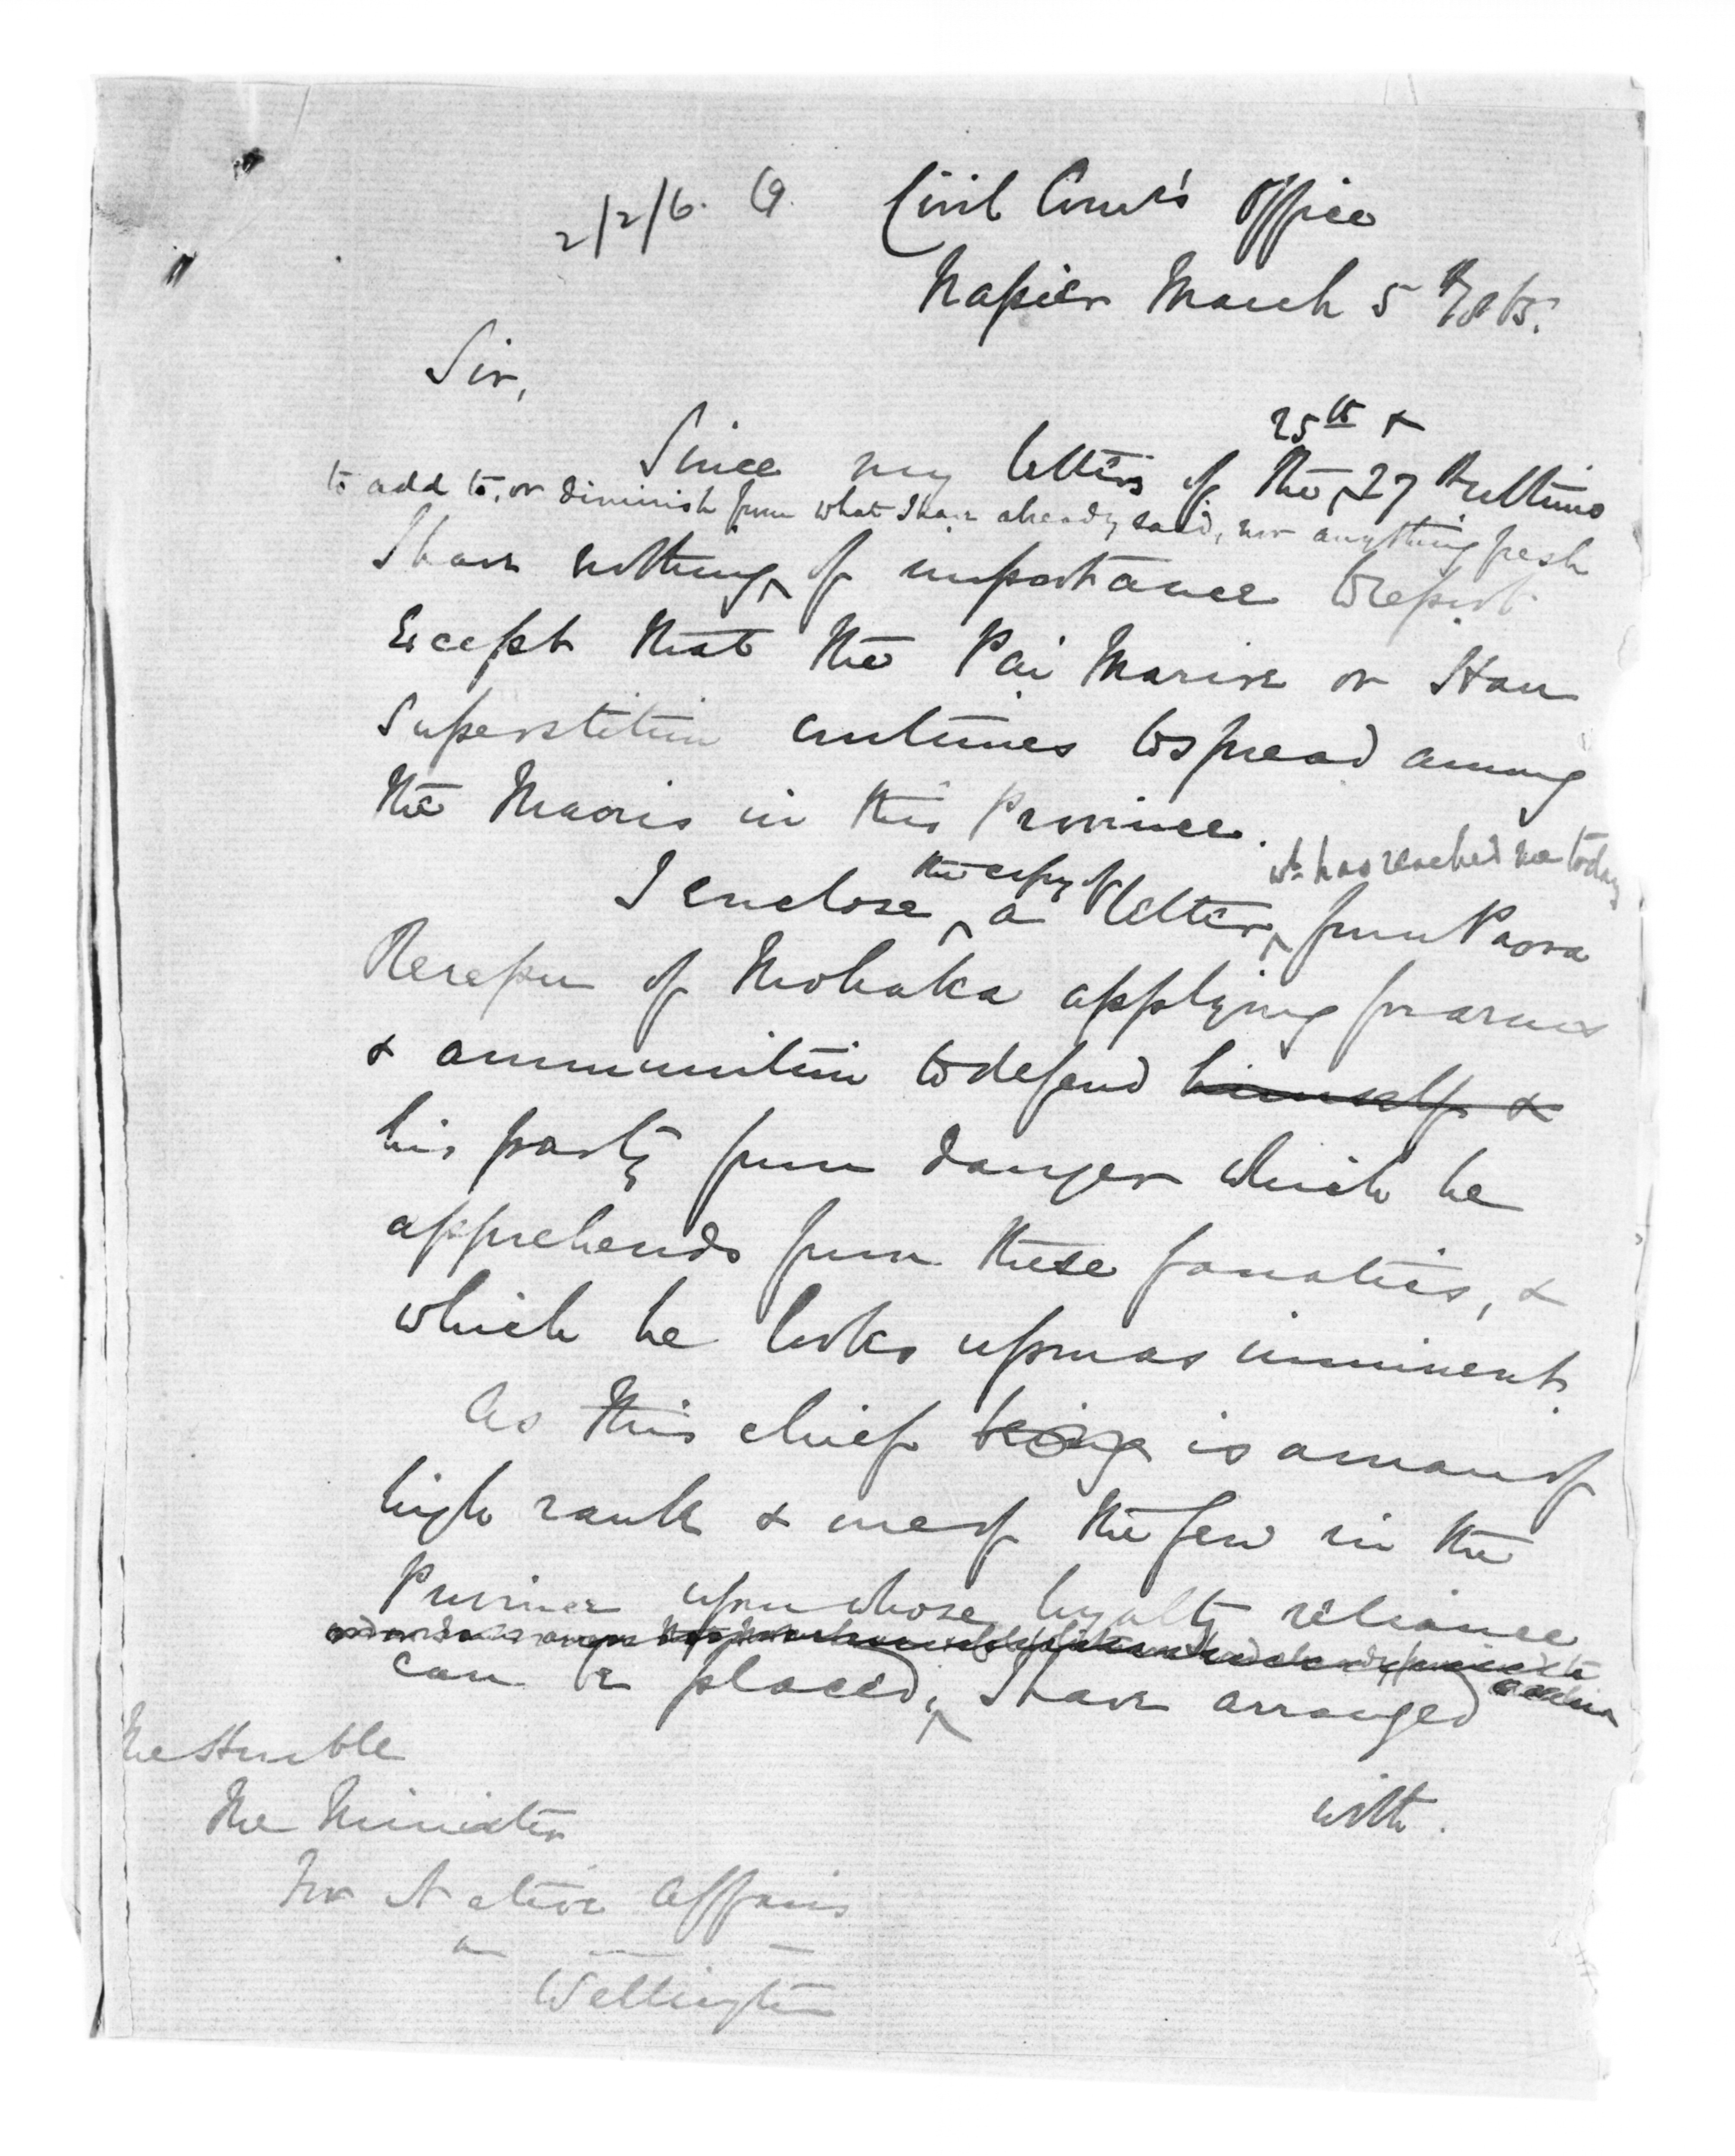 2/2/6. 69.
Civil Comr's Office
Napier March 5th/65.
Sir,
25th &
Since my letters of the 27th ultimo
to add to, or diminish from what I have already said, nor anything fresh
I have nothing of importance to report
Except that the Pai Marire or Hau
Superstition continues to spread among
the Maoris in this Province.
the copy of wh has reached me today
I enclose a letter from Paora
Rerepu of Mohaka applying for arms
& ammunition to defend himself &
his party from danger which he
apprehends from these fanatics, &
which he looks upon as imminent.
As this chief being is a man of
high rank & one of the few in the
Province upon whose loyalty reliance
can be placed, I have arranged
with.
The Honble
The Minister
For Native Affairs
Wellington